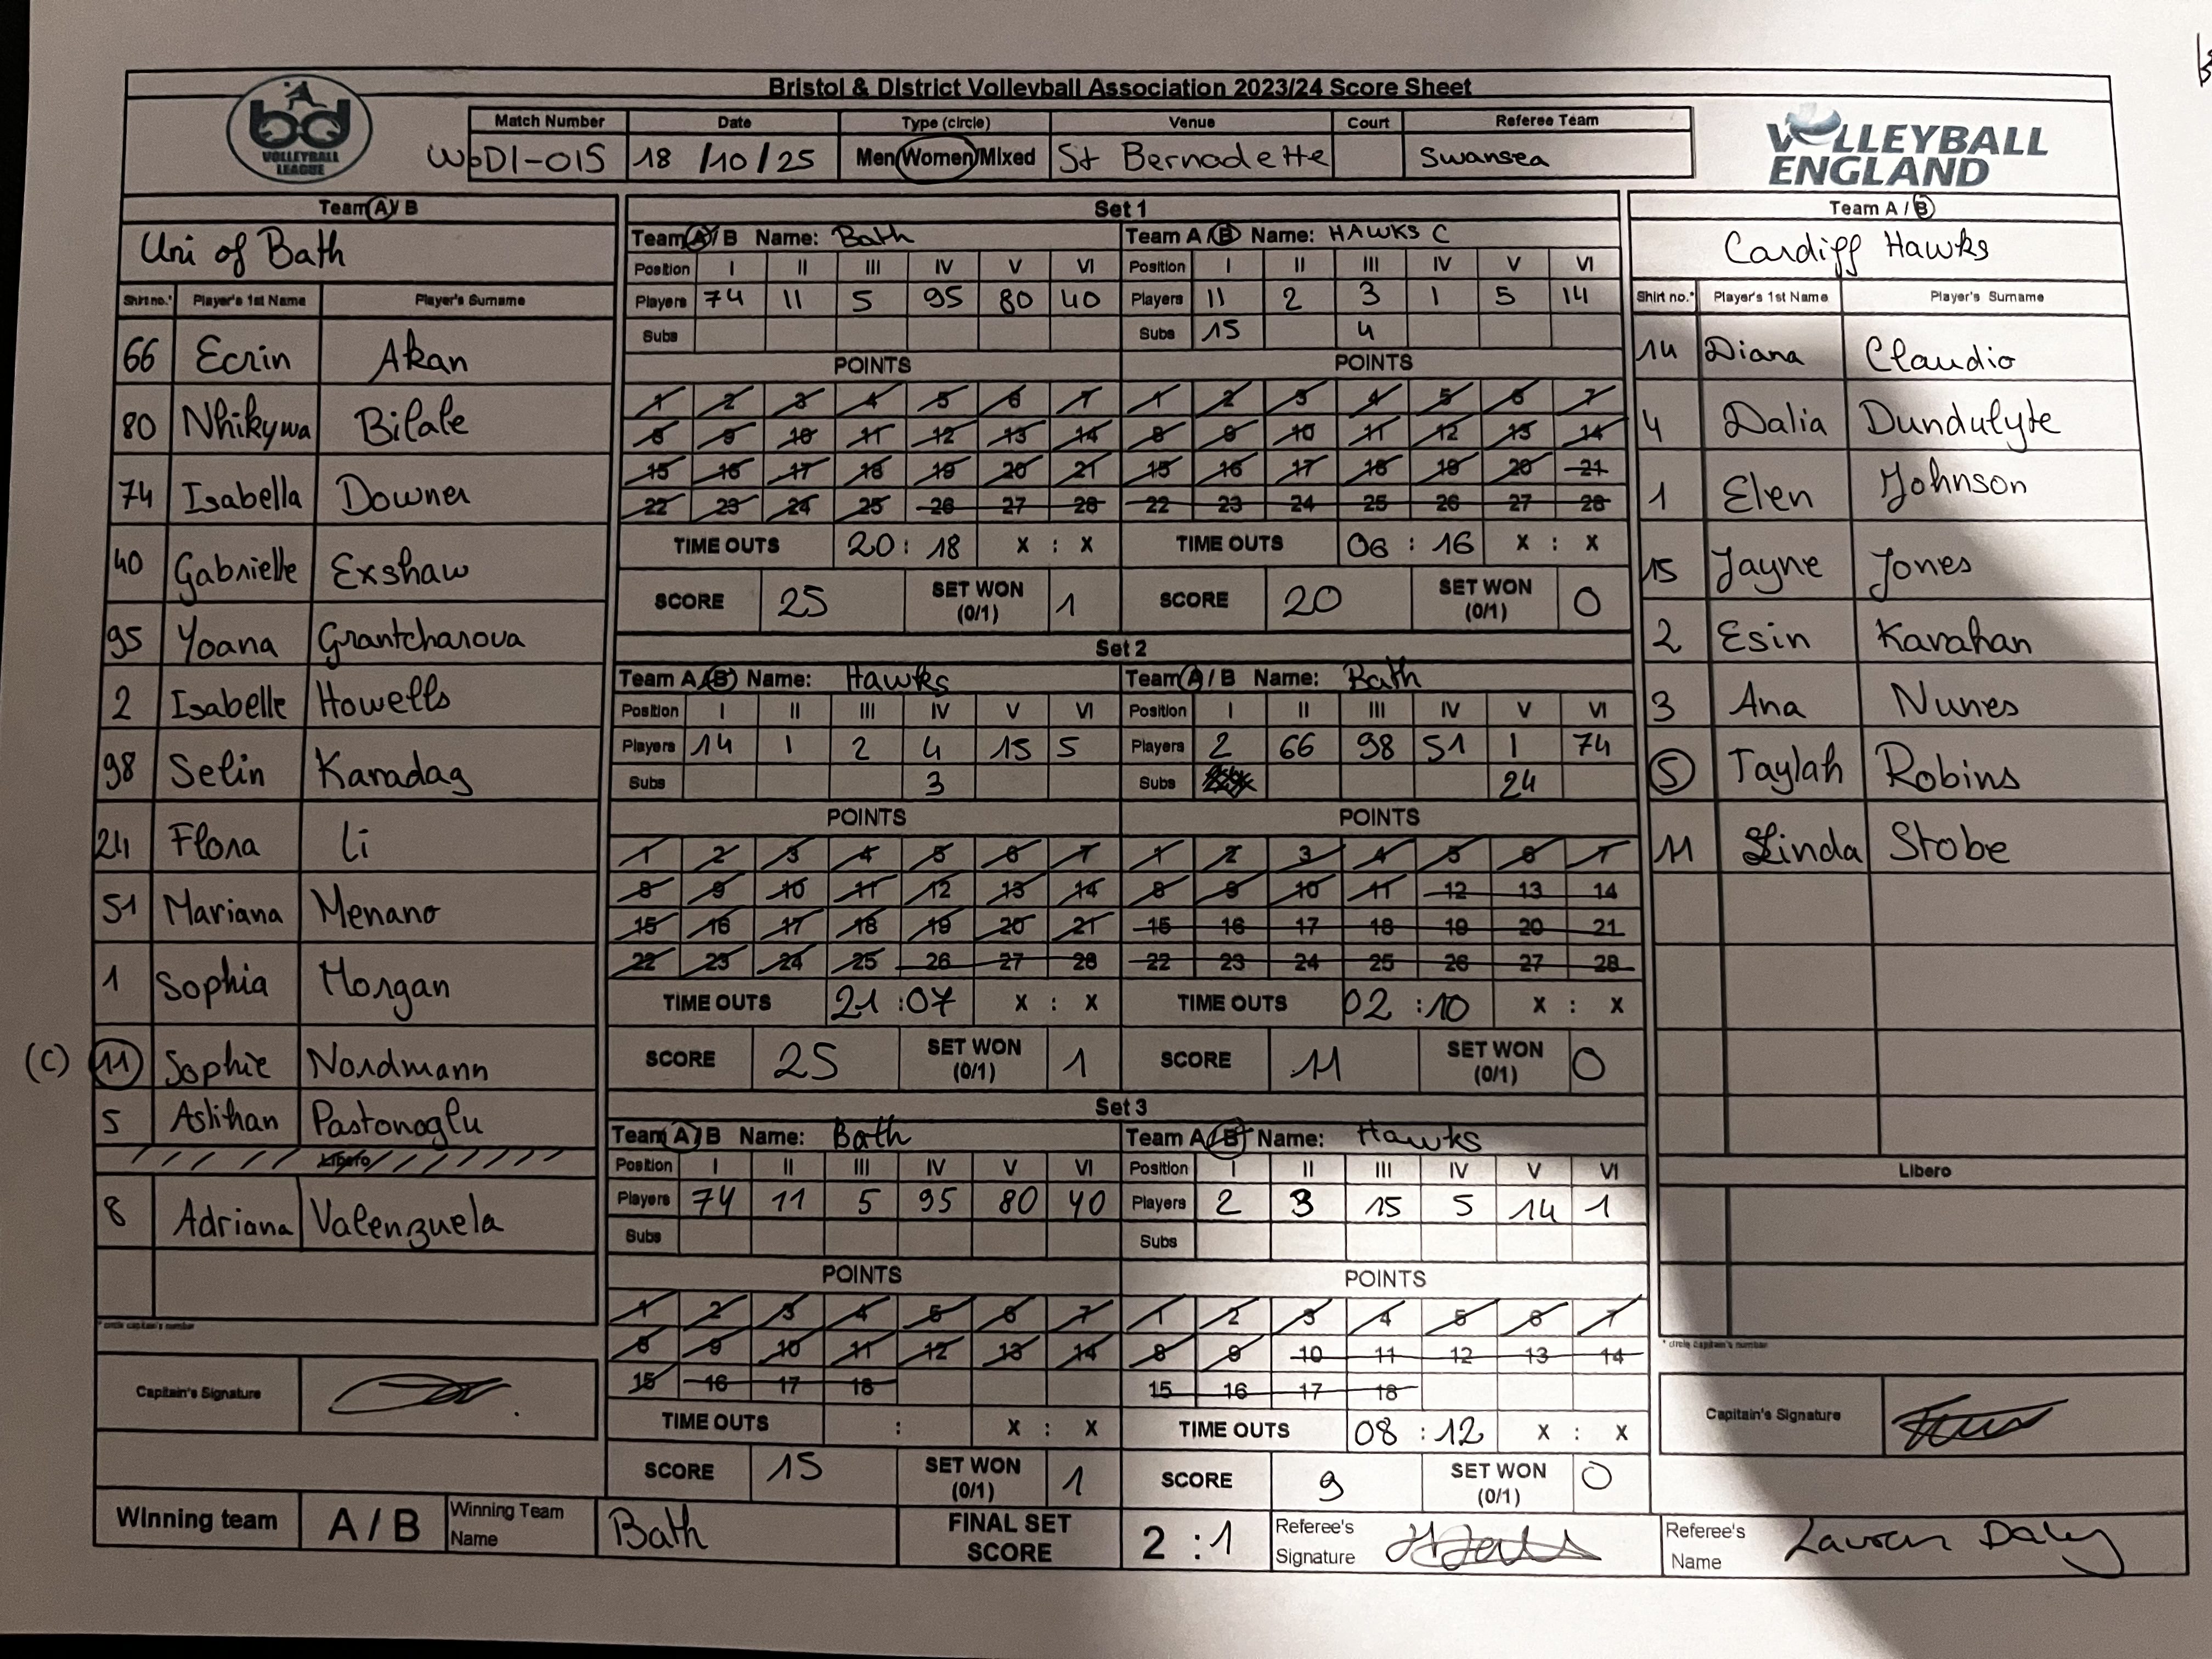 Bristol & District Volleyball Association 2023/24 Score Sheet
bd VOLLEYBALL LEAGUE
Match Number Date Type (circle) Venue Court Referee Team
WbD1-015 18 /10/25 Men/Women/Mixed St Bernadette Swansea
VOLLEYBALL ENGLAND
Team A/ B
Uni of Bath
Shirt no.* Player's 1st Name Player's Surname
66 Ecrin Akan
80 Nhikywa Bilale
74 Isabella Downer
40 Gabrielle Exshaw
95 Yoana Grantcharova
2 Isabelle Howells
98 Selin Karadag
24 Flora Li
51 Mariana Menano
1 Sophia Morgan
(C) 11 Sophie Nordmann
5 Aslihan Pastonoglu
Libero
8 Adriana Valenzuela
* circle captain's number
Captain's Signature
Set 1
Team A/ B Name: Bath
Position I II III IV V VI
Players 74 11 5 95 80 40
Subs
POINTS
1 2 3 4 5 6 7
8 9 10 11 12 13 14
15 16 17 18 19 20 21
22 23 24 25 26 27 28
TIME OUTS 20 : 18 X : X
SCORE 25 SET WON (0/1) 1
Team A / B Name: HAWKS C
Position I II III IV V VI
Players 11 2 3 1 5 14
Subs 15 4
POINTS
1 2 3 4 5 6 7
8 9 10 11 12 13 14
15 16 17 18 19 20 21
22 23 24 25 26 27 28
TIME OUTS 06 : 16 X : X
SCORE 20 SET WON (0/1) 0
Set 2
Team A/ B Name: Hawks
Position I II III IV V VI
Players 14 1 2 4 15 5
Subs 3
POINTS
1 2 3 4 5 6 7
8 9 10 11 12 13 14
15 16 17 18 19 20 21
22 23 24 25 26 27 28
TIME OUTS 21 : 07 X : X
SCORE 25 SET WON (0/1) 1
Team A / B Name: Bath
Position I II III IV V VI
Players 2 66 98 51 1 74
Subs 24
POINTS
1 2 3 4 5 6 7
8 9 10 11 12 13 14
15 16 17 18 19 20 21
22 23 24 25 26 27 28
TIME OUTS 02 : 10 X : X
SCORE 11 SET WON (0/1) 0
Set 3
Team A / B Name: Bath
Position I II III IV V VI
Players 74 11 5 95 80 40
Subs
POINTS
1 2 3 4 5 6 7
8 9 10 11 12 13 14
15 16 17 18
TIME OUTS : X : X
SCORE 15 SET WON (0/1) 1
Team A / B Name: Hawks
Position I II III IV V VI
Players 2 3 15 5 14 1
Subs
POINTS
1 2 3 4 5 6 7
8 9 10 11 12 13 14
15 16 17 18
TIME OUTS 08 : 12 X : X
SCORE 9 SET WON (0/1) 0
Team A / B
Cardiff Hawks
Shirt no.* Player's 1st Name Player's Surname
14 Diana Claudio
4 Dalia Dundulyte
1 Elen Johnson
15 Jayne Jones
2 Esin Karahan
3 Ana Nunes
5 Taylah Robins
11 Linda Stobe
Libero
* circle captain's number
Captain's Signature
Winning team A / B Winning Team Name Bath FINAL SET SCORE 2 : 1 Referee's Signature Referee's Name Lauren Daley